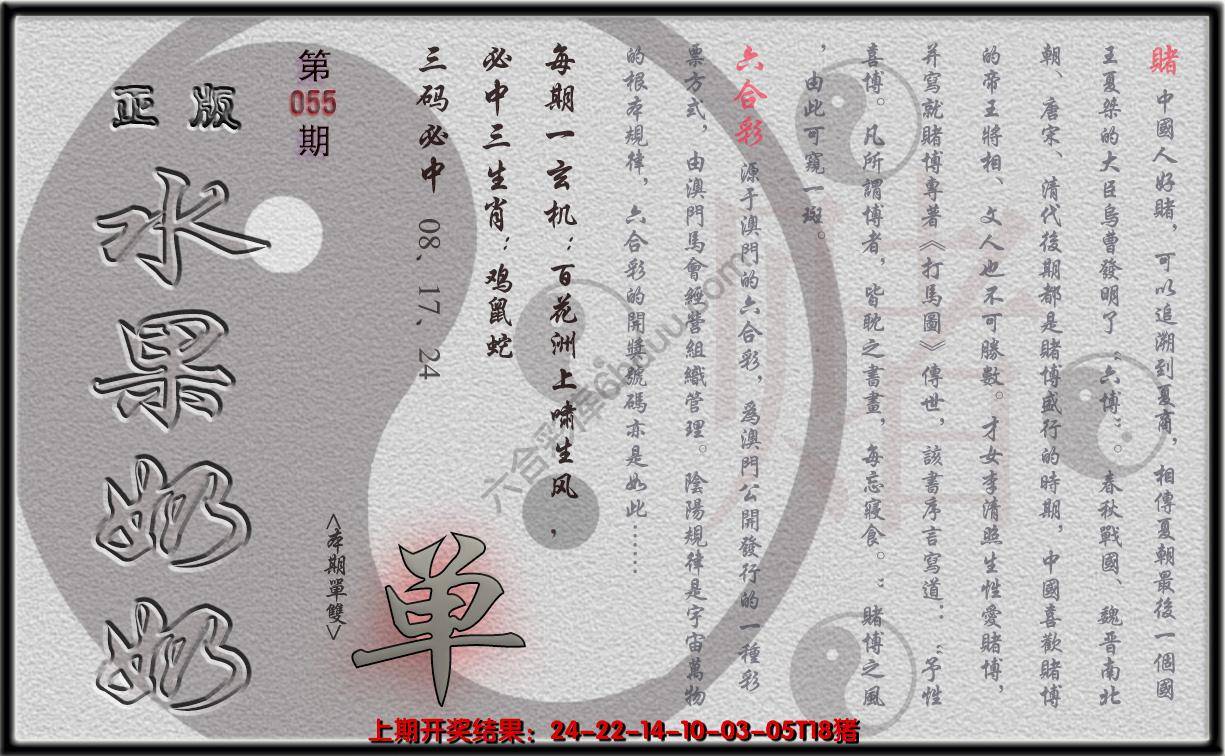 賭 中國人好賭，可以追溯到夏商，相傳夏朝最後一個國
王夏桀的大臣烏曹發明了“六博”。春秋戰國、魏晋南北
朝、唐宋、清代後期都是賭博盛行的時期，中國喜歡賭博
的帝王將相、文人也不可勝數。才女李清照生性愛賭博，
并寫就賭博專著《打馬圖》傳世，該書序言寫道：“予性
喜博。凡所謂博者，皆耽之晝晝，每忘寢食。”賭博之風
，由此可窺一斑。
六合彩 源于澳門的六合彩，為澳門公開發行的一種彩
票方式，由澳門馬會經營組織管理。陰陽規律是宇宙萬物
的根本規律，六合彩的開獎號碼亦是如此……
每期一玄机：百花洲上啸生风，
必中三生肖：鸡鼠蛇
三码必中 08、17、24
第
055
期
正版
水果奶奶
<本期單雙>
单
六合彩库6huuu.com
上期开奖结果：24-22-14-10-03-05T18猪